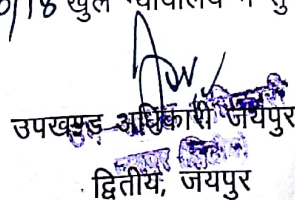 /18 खुले न्यायालय में सु
उपखण्ड अधिकारी जयपुर
द्वितीय, जयपुर